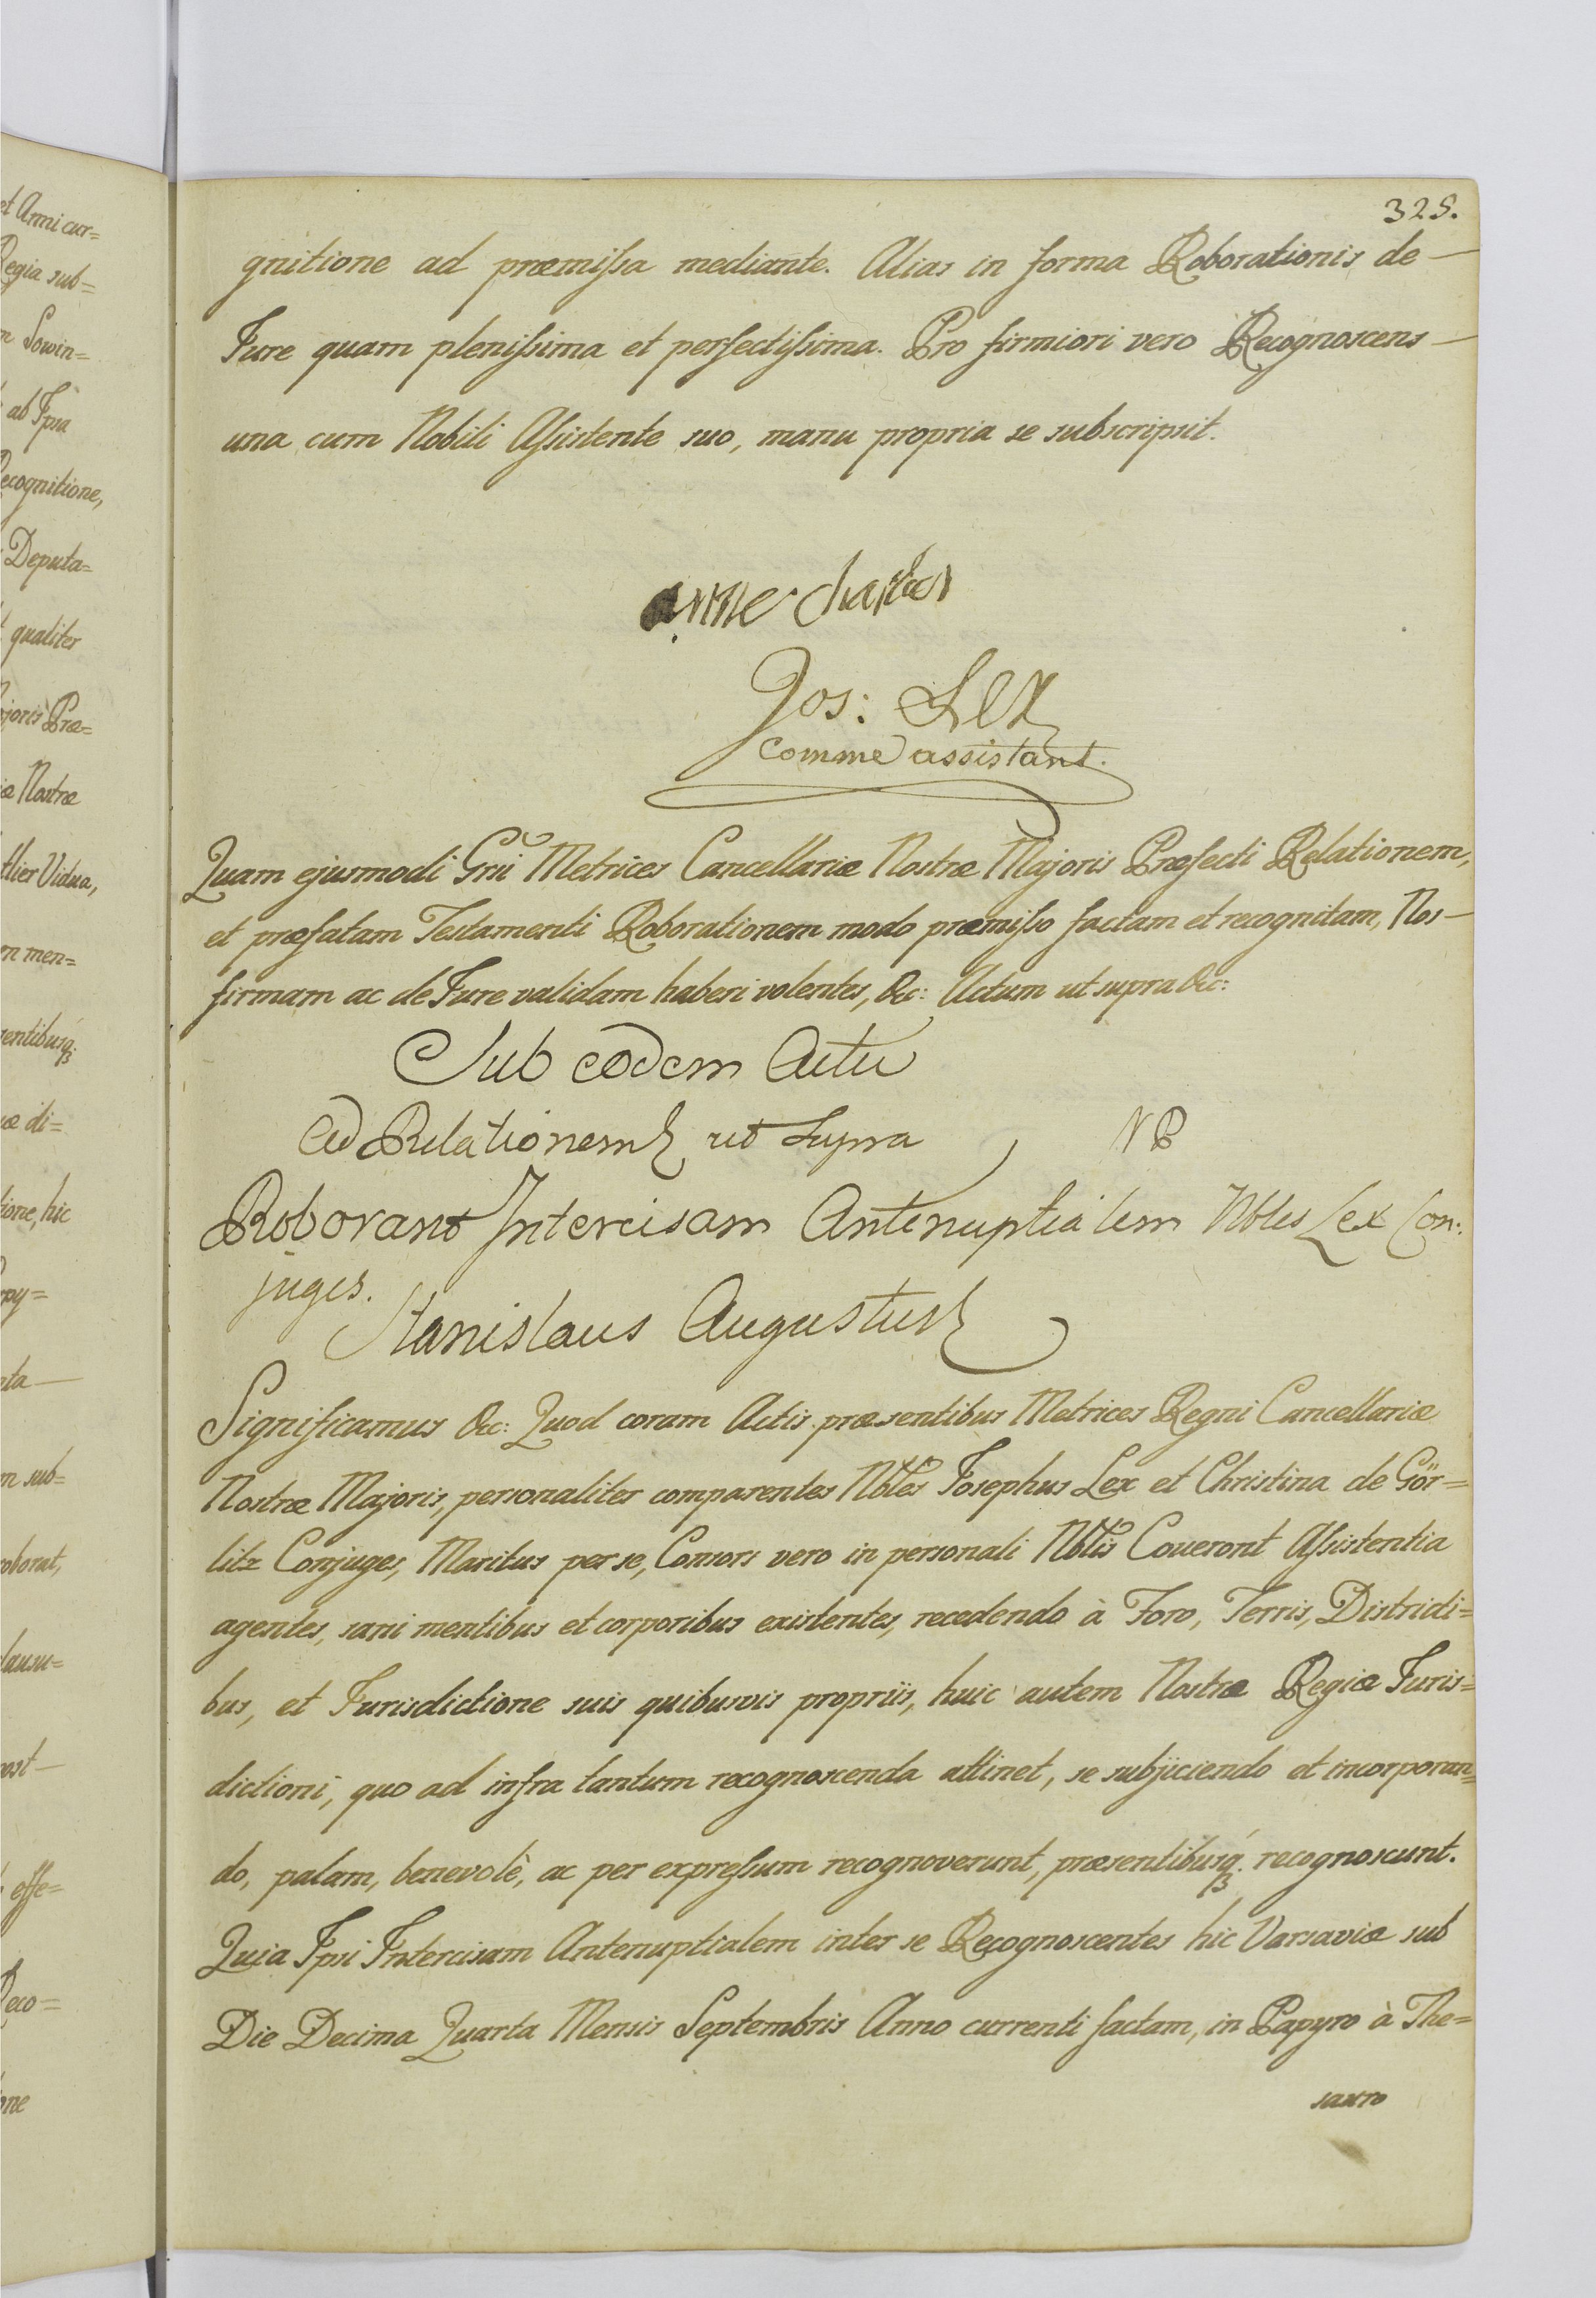 325.
gnitione ad præmissa mediante. Alias in forma Roborationis de —
Jure quam plenissima et perfectissima. Pro firmiori vero Recognoscens —
una cum Nobili Assistente suo, manu propria se subscripsit.
anne
Jos: Lex
Comme assistant.
Quam ejusmodi Grui Metrices Cancellariæ Nostræ Majoris Præfecti Relationem,
et præfatam Testamenti Roborationem modo præmisso factam et recognitam, Nos —
firmam ac de Jure validam haberi volentes, &c: Actum ut supra &c:
Sub eodem Actu
Ad Relationem ut Supra NP
Roborant Intercisam Antenuptialem Nbles Lex Con:
juges.
Stanislaus Augustus
Significamus &c: Quod coram Actis præsentibus Metrices Regni Cancellariæ
Nostræ Majoris, personaliter comparentes Nbles Josephus Lex et Christina de Gör=
litz Conjuges, Maritus per se, Consors vero in personali Nblis Coueront Assistentia
agentes, sani mentibus et corporibus existentes, recedendo à Foro, Terris, Districti=
bus, et Jurisdictione suis quibusvis propriis, huic autem Nostræ Regiæ Juris=
dictioni, quo ad infra tantum recognoscenda attinet, se subjiciendo et incorporan=
do, palam, benevolè, ac per expressum recognoverunt, præsentibusq; recognoscunt.
Quia Ipsi Intercisam Antenuptialem inter se Recognoscentes hic Varsaviæ sub
Die Decima Quarta Mensis Septembris Anno currenti factam, in Papyro à The=
sauro
et Armi cur=
Regia sub=
Sowin=
ab Ipsa
Recognitione,
Deputa=
qualiter
joris Præ=
Nostræ
tlier Vidua,
men=
sentibusq;
di=
tione, hic
py=
ta —
sub=
roborat,
lausu=
ost —
effe=
Reco=
one